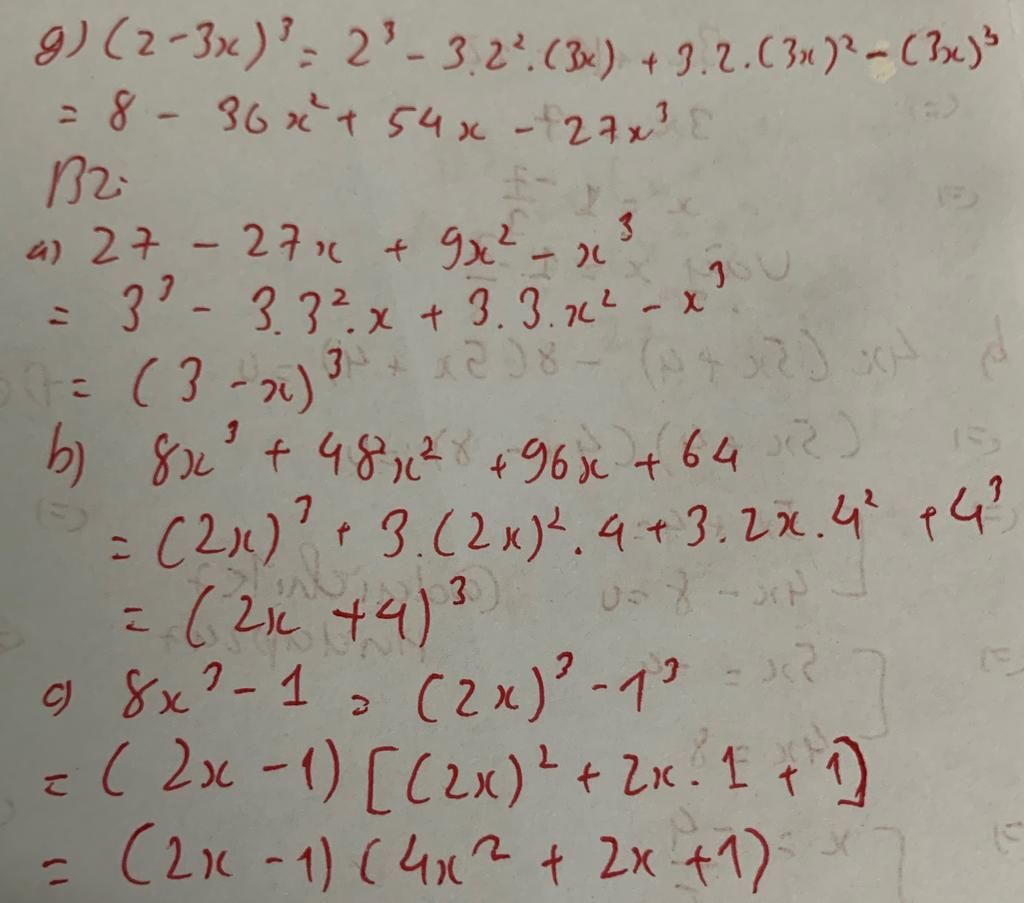 g) (2-3x)³ = 2³ - 3.2².(3x) + 3.2.(3x)² - (3x)³
= 8 - 36x² + 54x - 27x³
B2:
a) 27 - 27x + 9x² - x³
= 3³ - 3.3².x + 3.3.x² - x³
= (3-x)³
b) 8x³ + 48x² + 96x + 64
= (2x)³ + 3.(2x)².4 + 3.2x.4² + 4³
= (2x+4)³
c) 8x³ - 1 = (2x)³ - 1³
= (2x-1)[(2x)² + 2x.1 + 1]
= (2x-1)(4x² + 2x + 1)